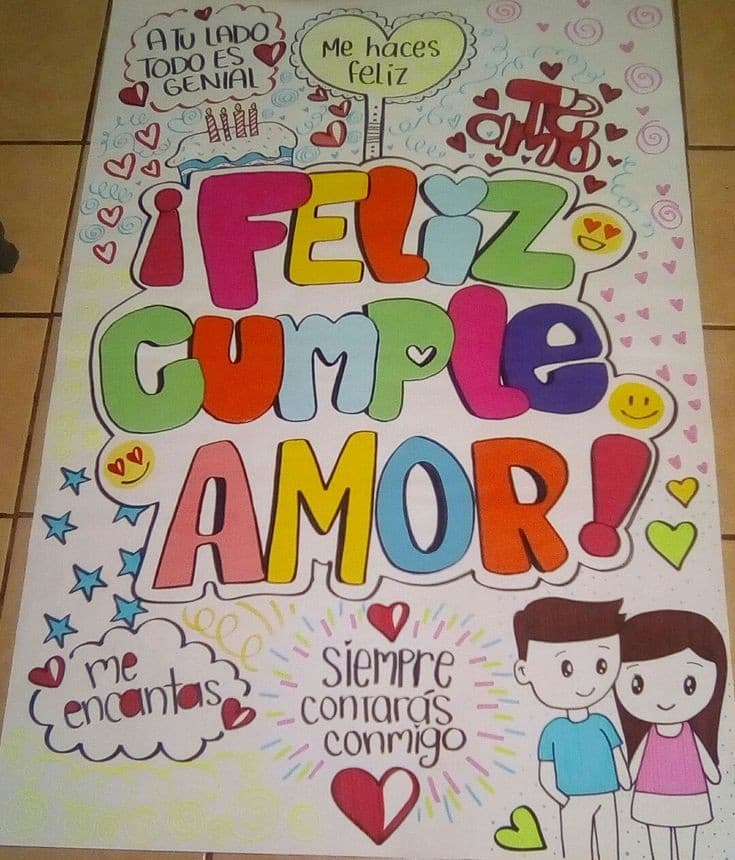 A TU LADO
TODO ES
GENIAL
Me haces
feliz
Te
amo
¡FELiZ
CUMPLe
AMOR!
me
encantas
SiEMPRE
contarás
conmigo